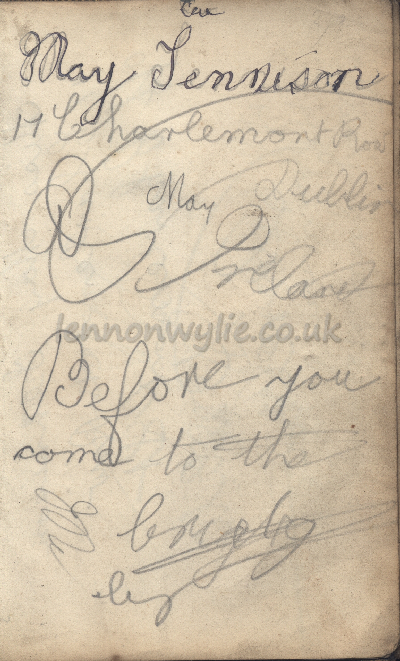 May Tennison
17 Charlemont Row
May Dublin
Ireland
lennonwylie.co.uk
Before you
come to the
by